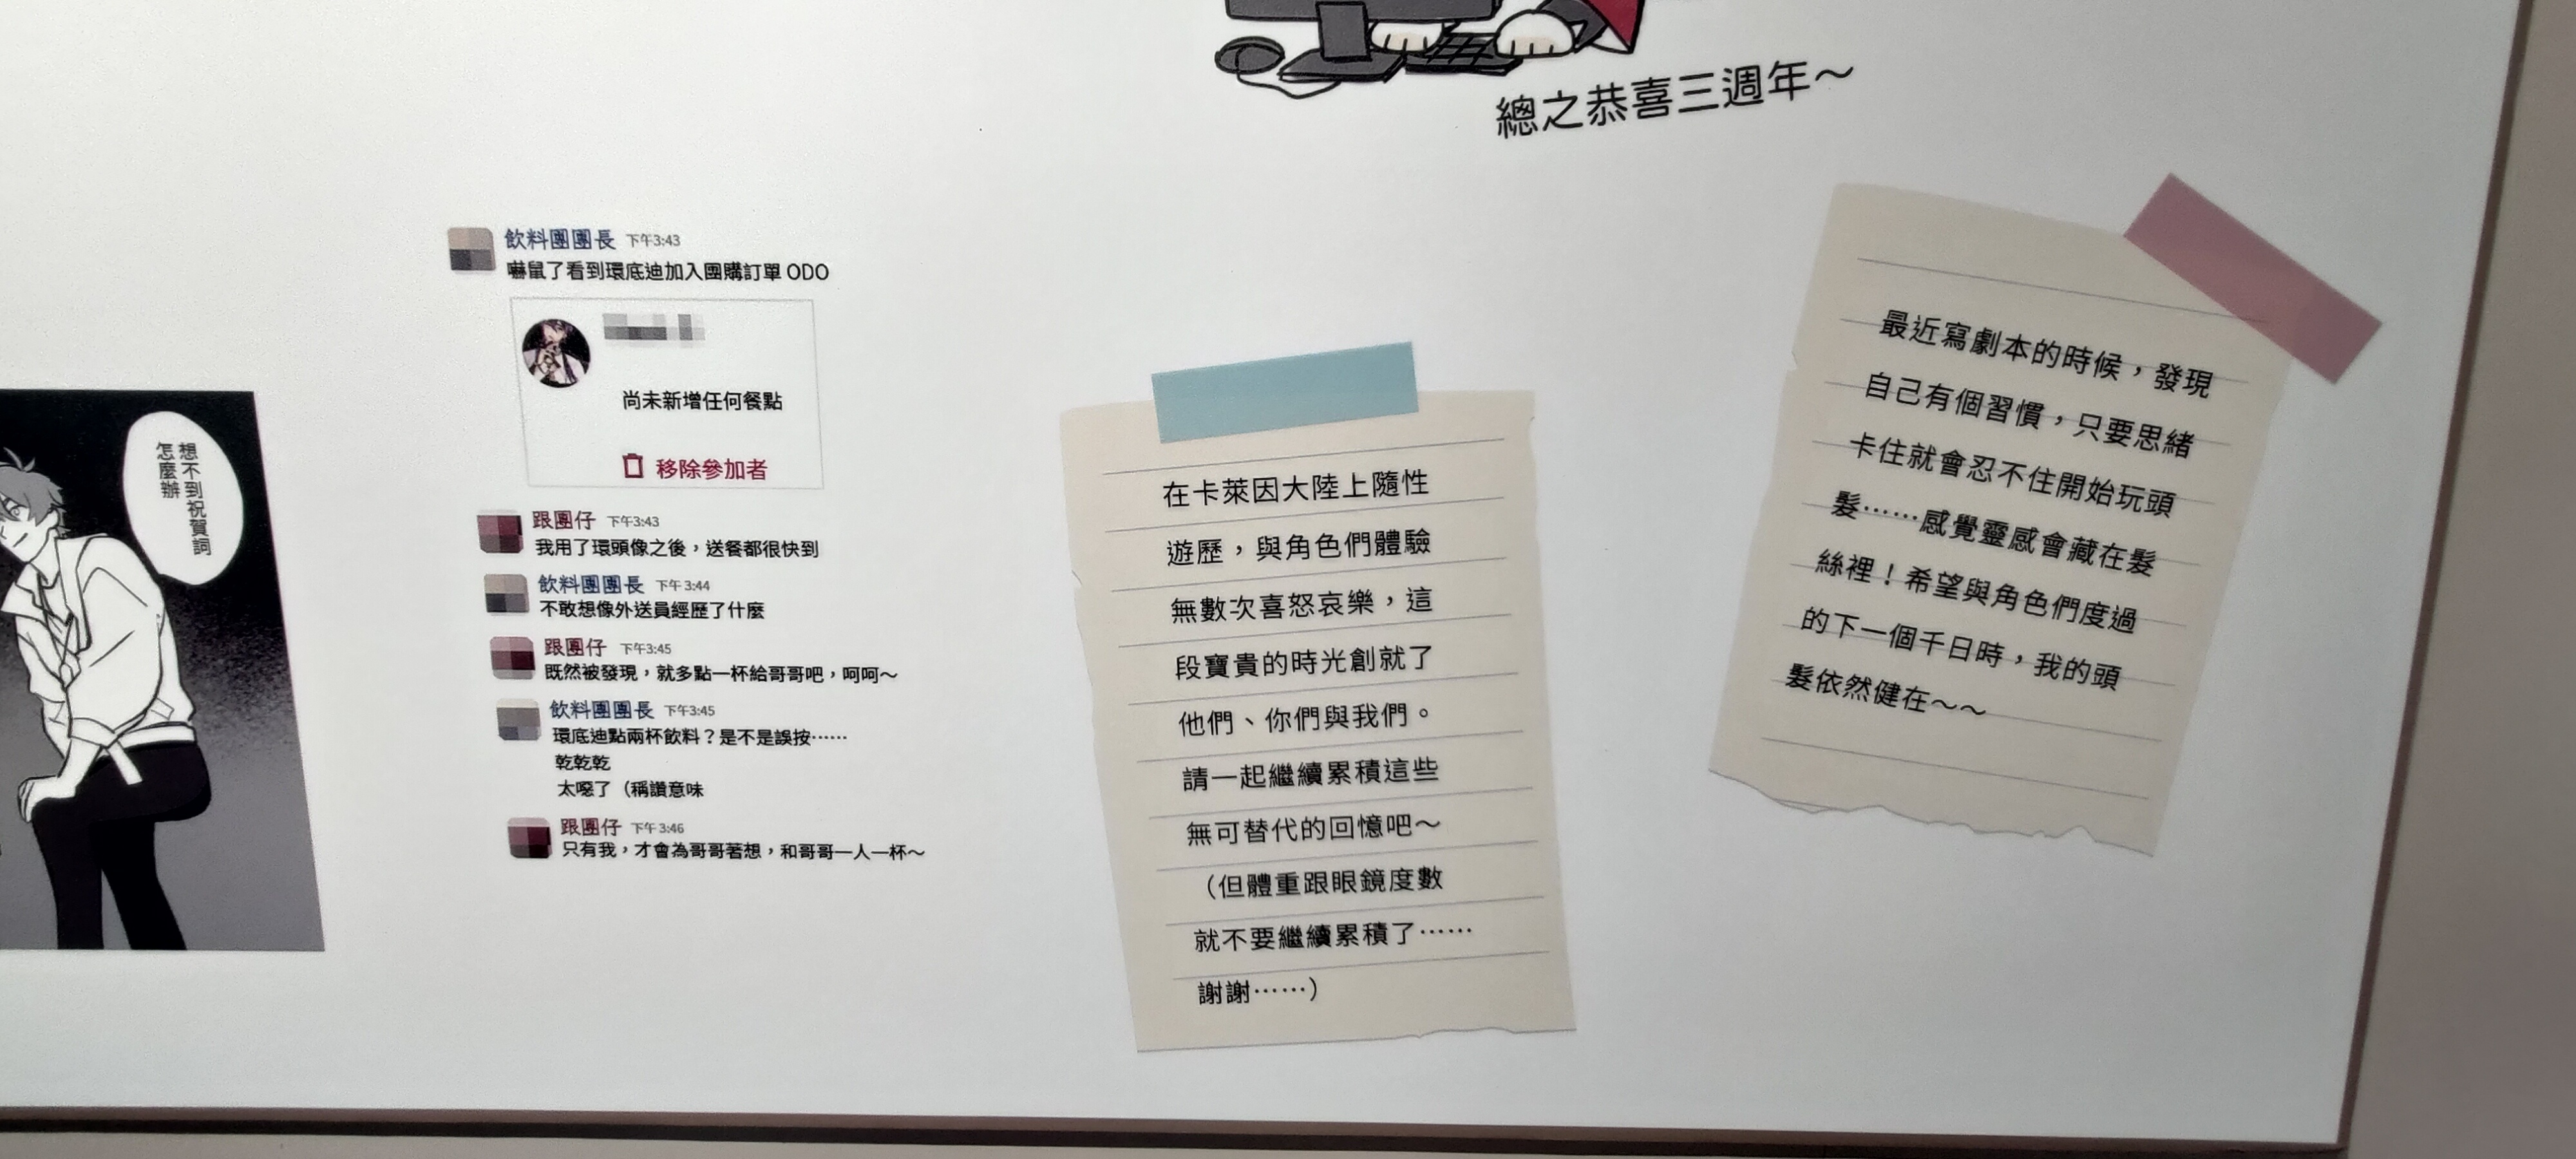 總之恭喜三週年～
想不到祝賀詞
怎麼辦
飲料團團長 下午3:43
嚇鼠了看到環底迪加入團購訂單 ODO
尚未新增任何餐點
移除參加者
跟團仔 下午3:43
我用了環頭像之後，送餐都很快到
飲料團團長 下午 3:44
不敢想像外送員經歷了什麼
跟團仔 下午3:45
既然被發現，就多點一杯給哥哥吧，呵呵～
飲料團團長 下午3:45
環底迪點兩杯飲料？是不是誤按⋯⋯
乾乾乾
太噁了（稱讚意味
跟團仔 下午 3:46
只有我，才會為哥哥著想，和哥哥一人一杯～
在卡萊因大陸上隨性
遊歷，與角色們體驗
無數次喜怒哀樂，這
段寶貴的時光創就了
他們、你們與我們。
請一起繼續累積這些
無可替代的回憶吧～
（但體重跟眼鏡度數
就不要繼續累積了⋯⋯
謝謝⋯⋯）
最近寫劇本的時候，發現
自己有個習慣，只要思緒
卡住就會忍不住開始玩頭
髮⋯⋯感覺靈感會藏在髮
絲裡！希望與角色們度過
的下一個千日時，我的頭
髮依然健在～～